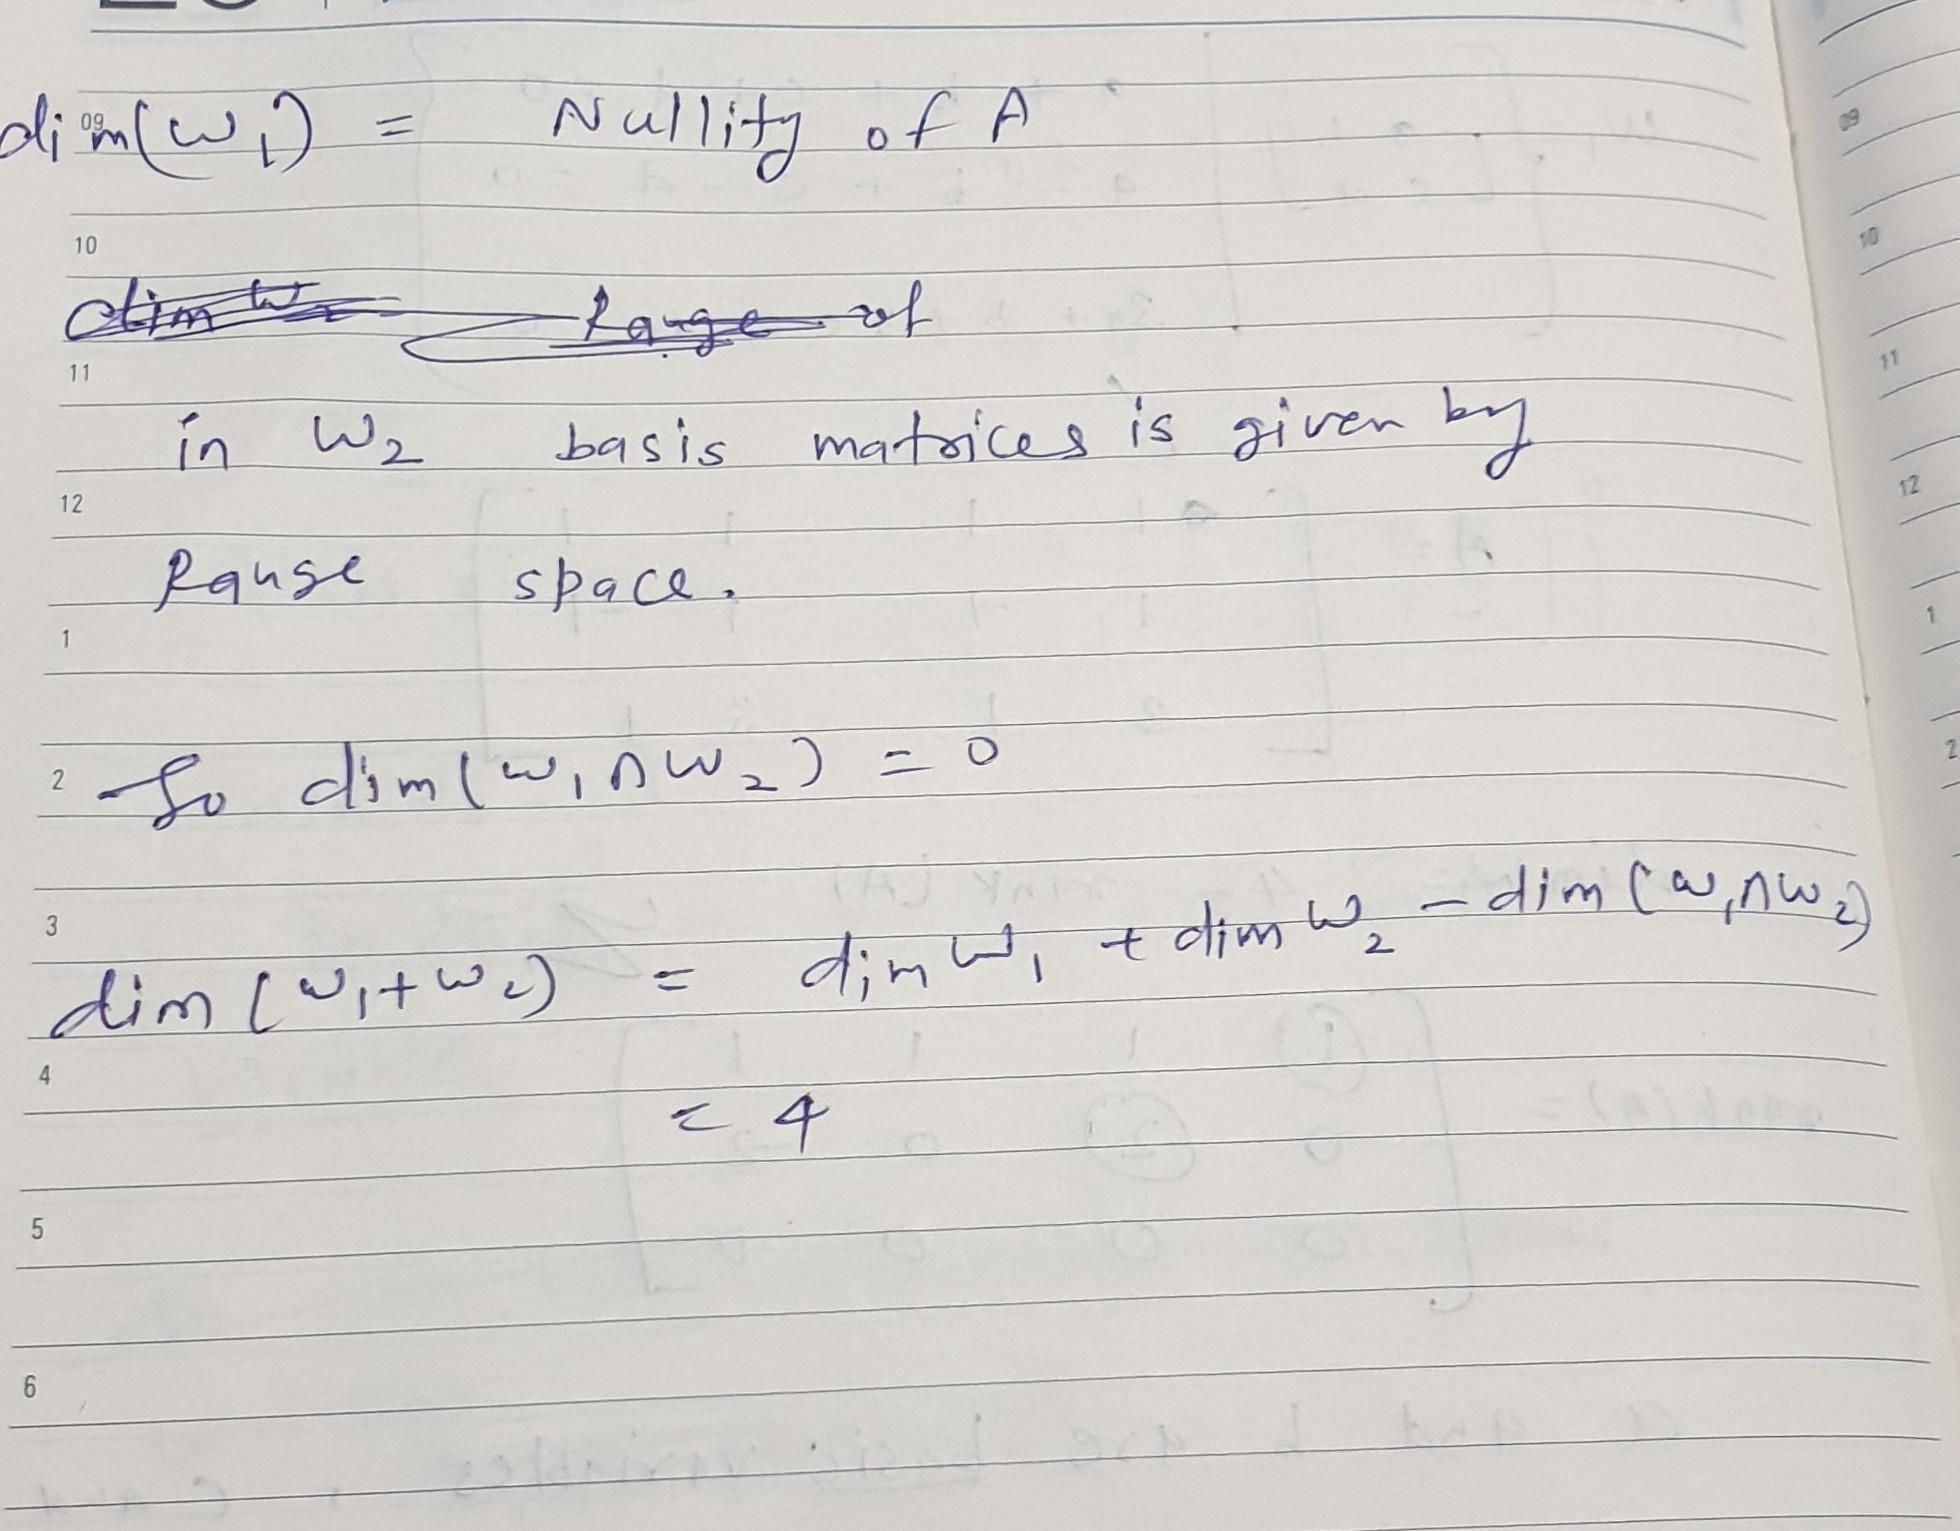 09
dim(W₁) = Nullity of A
10
11
in W₂ basis matrices is given by
12
Range space.
1
2 So dim(W₁∩W₂) = 0
3
dim(W₁+W₂) = dim W₁ + dim W₂ - dim(W₁∩W₂)
4
= 4
5
6
09
10
11
12
1
2